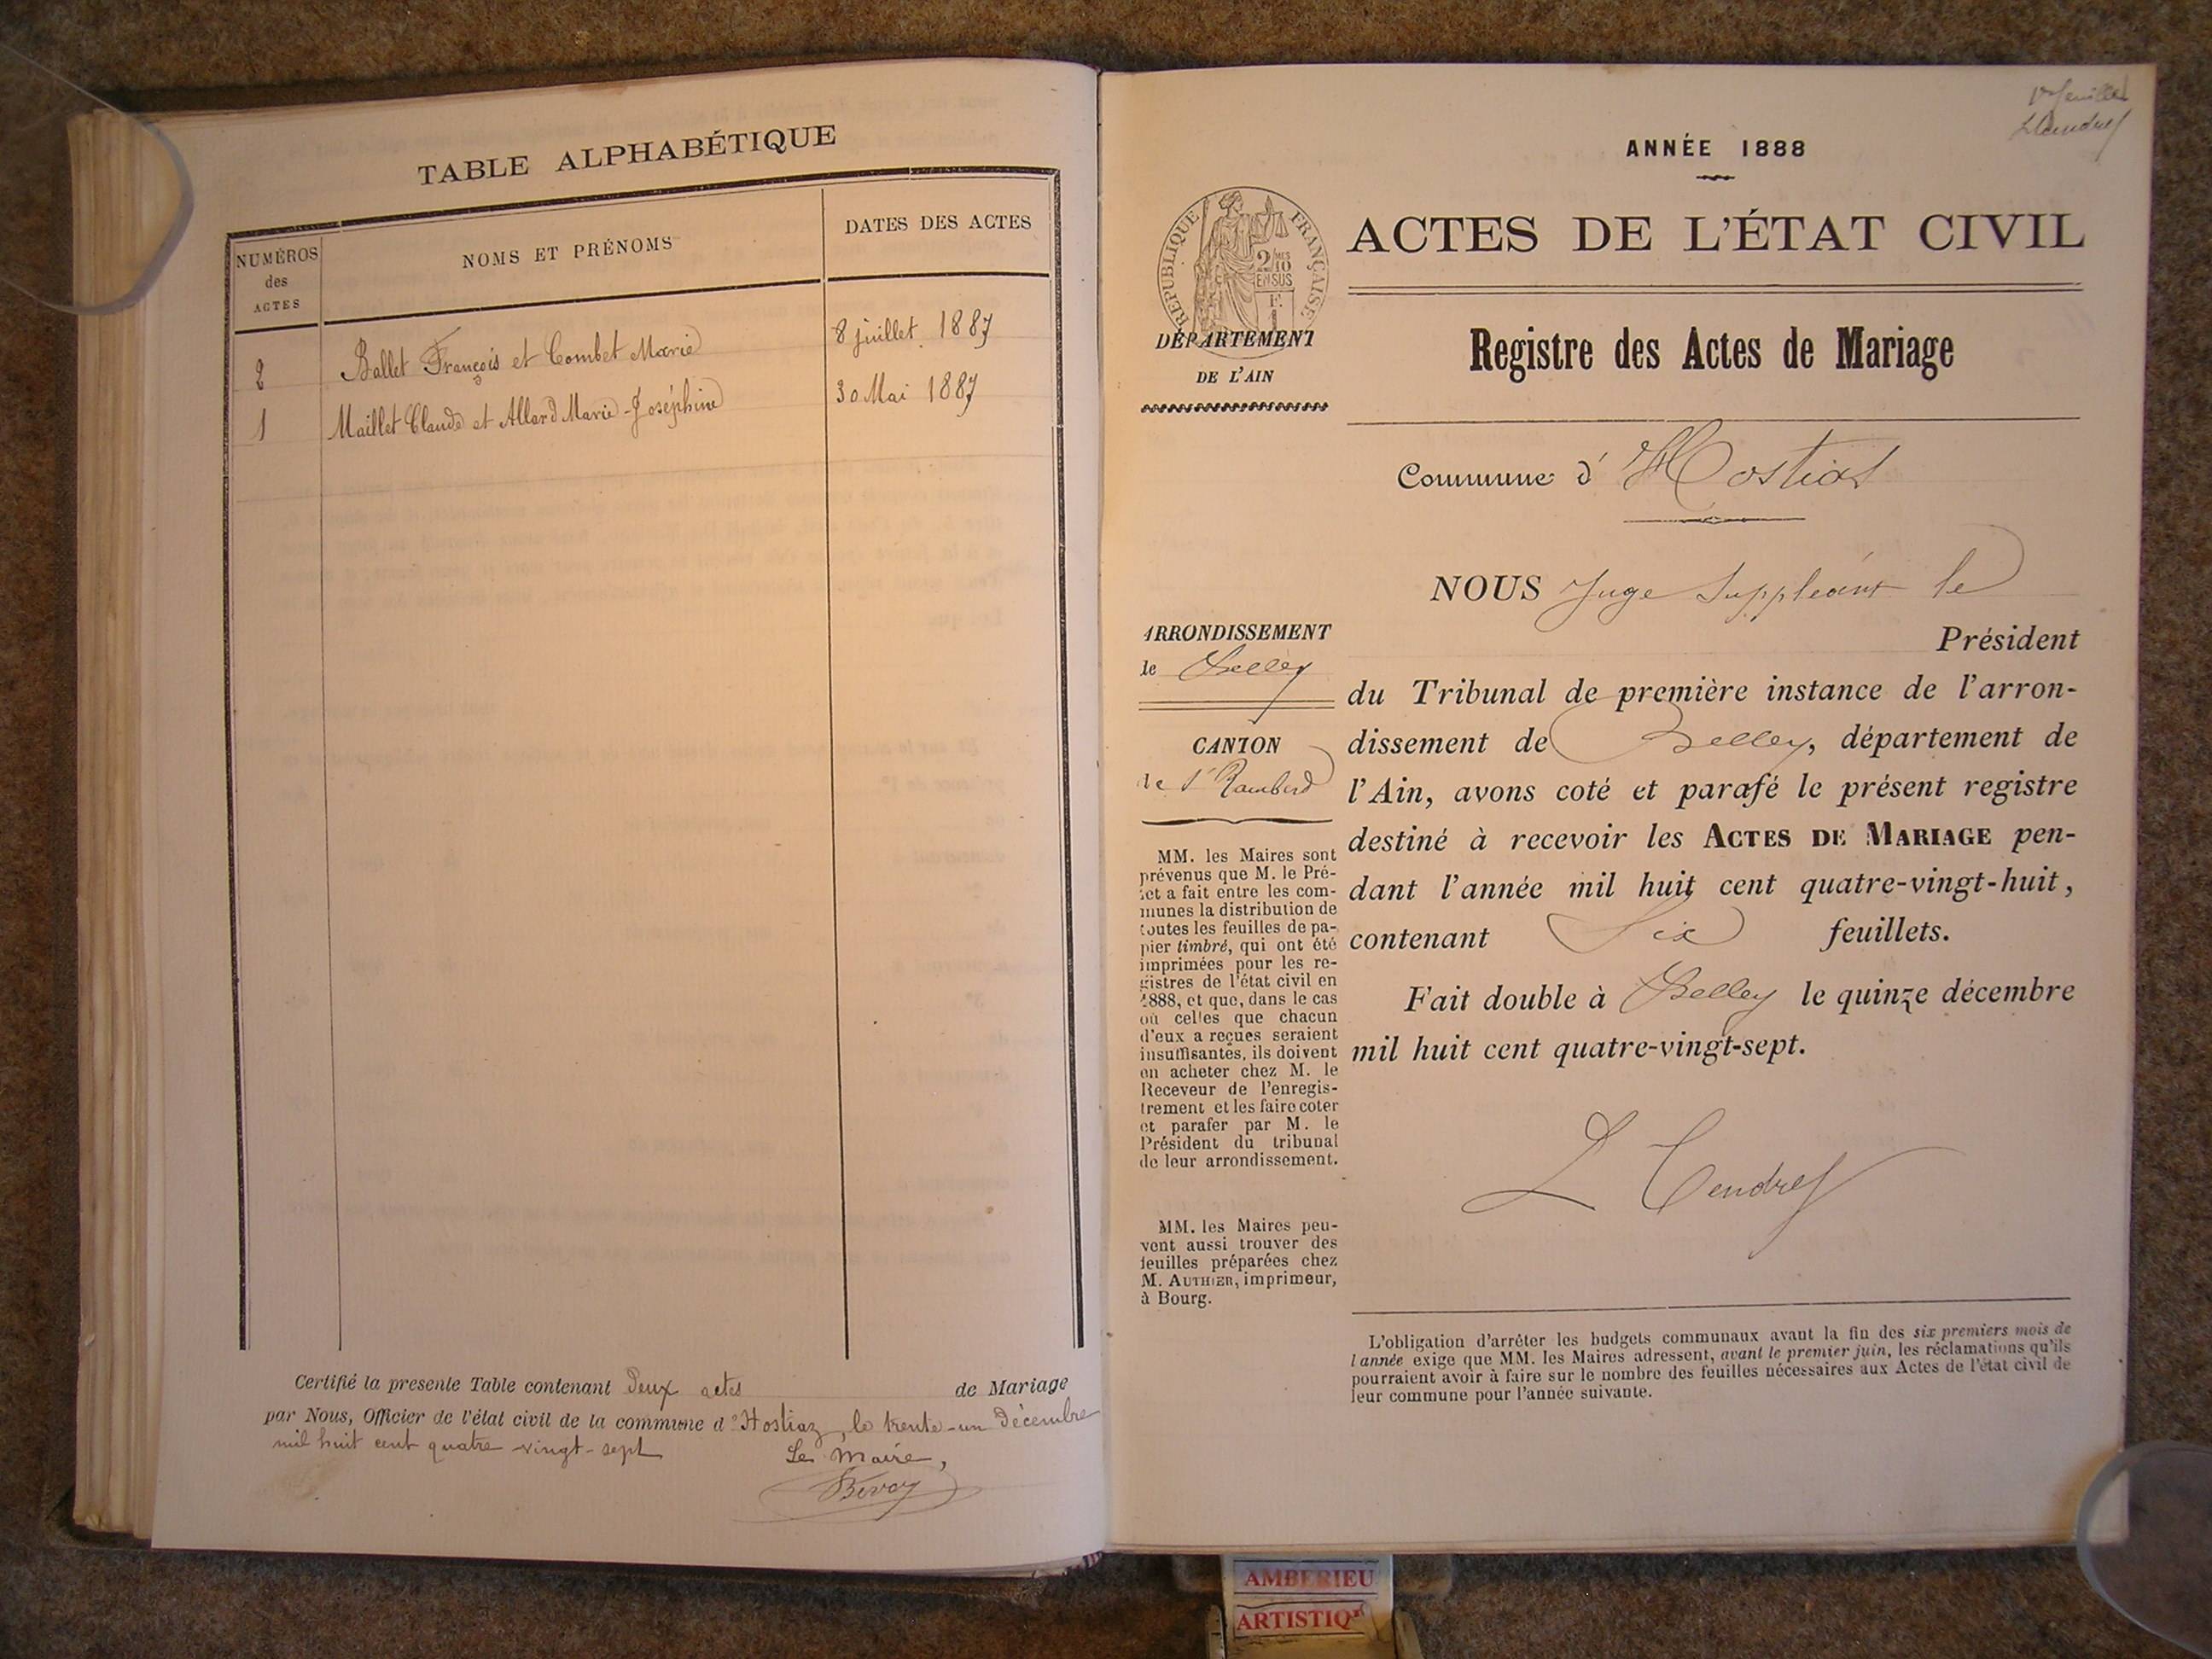 TABLE ALPHABÉTIQUE
NUMÉROS des ACTES
NOMS ET PRÉNOMS
DATES DES ACTES
2 Ballet François et Combet Marie 8 juillet 1887
1 Maillet Claude et Allard Marie-Joséphine 30 Mai 1887
Certifié la presente Table contenant Deux actes de Mariage
par Nous, Officier de l'état civil de la commune d'Hostiaz, le trente-un Décembre
mil huit cent quatre-vingt-sept
Le Maire,
1er feuillet
ANNÉE 1888
RÉPUBLIQUE FRANÇAISE
2/10 MES
EN SUS
F.
1
ACTES DE L'ÉTAT CIVIL
DÉPARTEMENT
DE L'AIN
Registre des Actes de Mariage
Commune d'Hostiaz
NOUS Juge Suppléant le
Président
du Tribunal de première instance de l'arron-
dissement de Belley, département de
l'Ain, avons coté et parafé le présent registre
destiné à recevoir les ACTES DE MARIAGE pen-
dant l'année mil huit cent quatre-vingt-huit,
contenant Six feuillets.
Fait double à Belley le quinze décembre
mil huit cent quatre-vingt-sept.
ARRONDISSEMENT
de Belley
CANTON
de St Rambert
MM. les Maires sont
prévenus que M. le Pré-
fet a fait entre les com-
munes la distribution de
toutes les feuilles de pa-
pier timbré, qui ont été
imprimées pour les re-
gistres de l'état civil en
1888, et que, dans le cas
où celles que chacun
d'eux a reçues seraient
insuffisantes, ils doivent
en acheter chez M. le
Receveur de l'enregis-
trement et les faire coter
et parafer par M. le
Président du tribunal
de leur arrondissement.
MM. les Maires peu-
vent aussi trouver des
feuilles préparées chez
M. AUTHIER, imprimeur,
à Bourg.
L'obligation d'arrêter les budgets communaux avant la fin des six premiers mois de
l'année exige que MM. les Maires adressent, avant le premier juin, les réclamations qu'ils
pourraient avoir à faire sur le nombre des feuilles nécessaires aux Actes de l'état civil de
leur commune pour l'année suivante.
AMBERIEU
ARTISTIQ